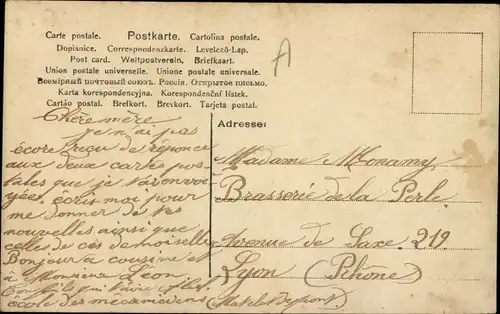 Carte postale. Postkarte. Cartolina postale.
Dopisnice. Correspondenzkarte. Levelező-Lap.
Post card. Weltpostverein. Briefkaart.
Union postale universelle. Unione postale universale.
Всемірный почтовый союзъ. Россія. Открытое письмо.
Karta korespondencyjna. Korespondenční lístek.
Cartão postal. Brefkort. Brevkort. Tarjeta postal.
A
Adresse:
Chère mère
je n'ai pas
écore reçu de réponce
aux deux cartes pos-
tales que je t'ai envoy
yées, écris moi pour
me donner de tes
nouvelles ainsi que
celles de ces demoiselles
Bonjour a cousine et
à Monsieur Léon.
Ton fils qui t'aime
école des mécaniciens
Madame Monamy
Brasserie de la Perle
Avenue de Saxe 219
Lyon (Rhône)